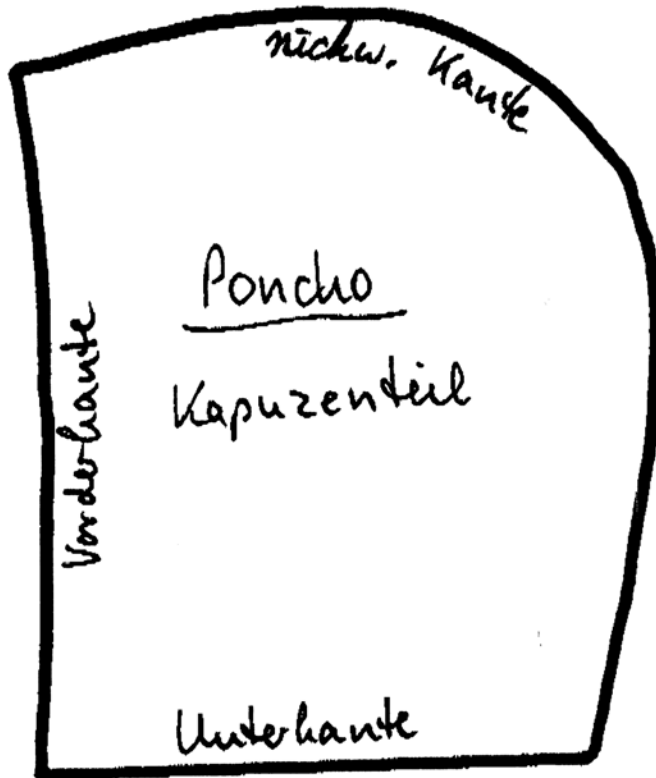 rückw. Kante
Poncho
Kapuzenteil
Vorderkante
Unterkante